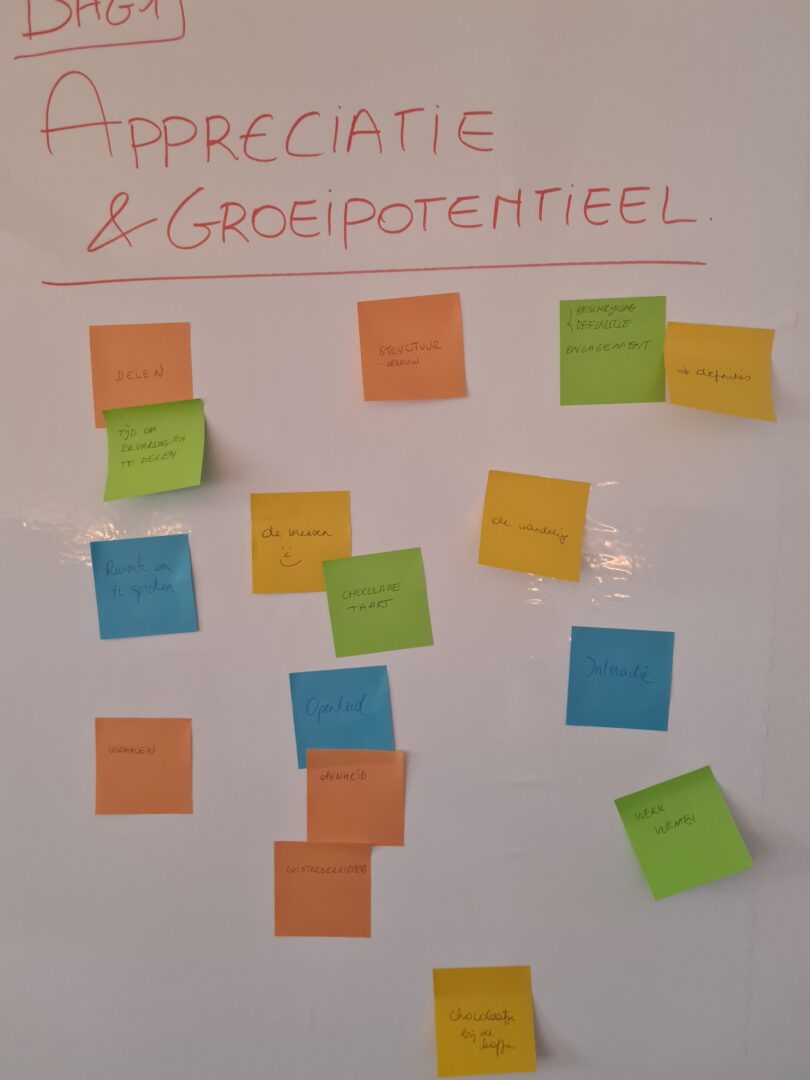 DAG 1
APPRECIATIE
& GROEIPOTENTIEEL.
DELEN
TIJD OM
ERVARINGEN
TE DELEN
STRUCTUUR
- OPBOUW
BESCHRIJVING
DEFINITIE
ENGAGEMENT
→ definities
de mensen
CHOCOLADE
TAART
de wandeling
Ruimte om
te spreken
Openheid
Interactie
VERHALEN
OPENHEID
LUISTERBEREIDHEID
WERK
VORMEN
chocolaatje
bij de
koffie